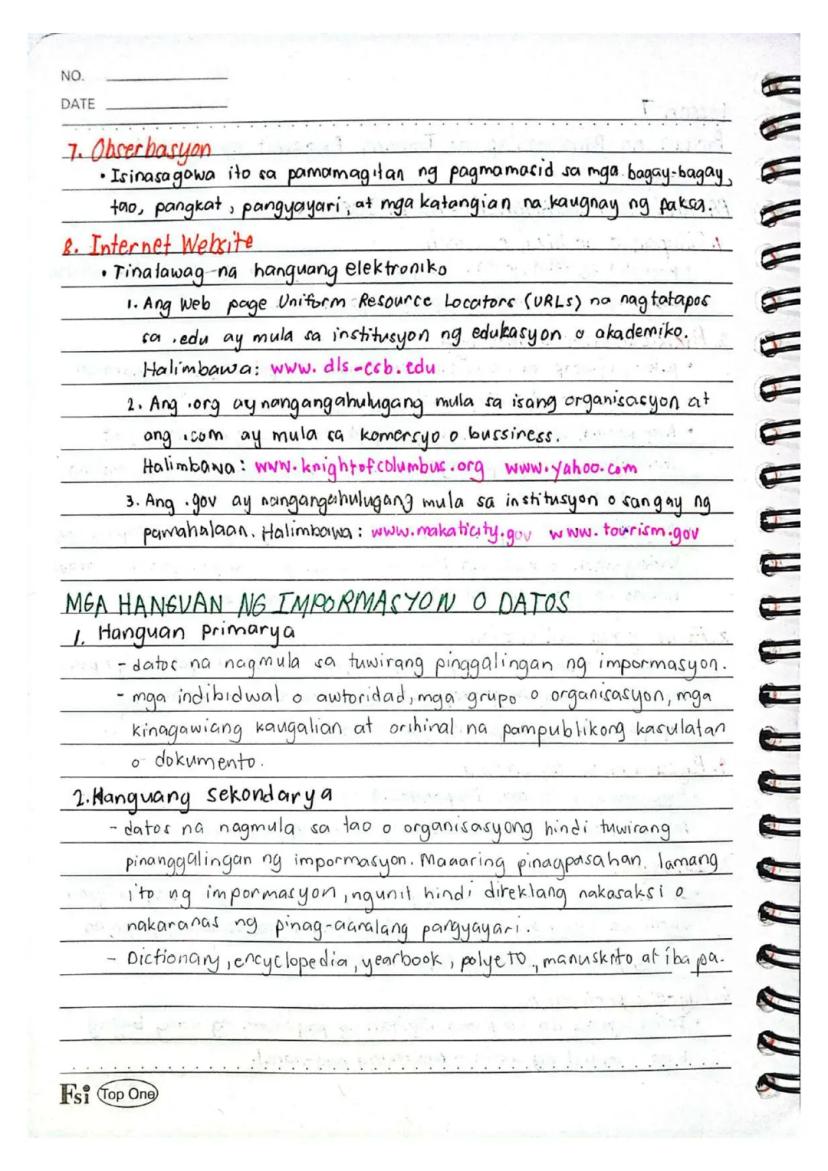 NO.
DATE
7. Obserbasyon
• Isinasagawa ito sa pamamagitan ng pagmamasid sa mga bagay-bagay,
tao, pangkat, pangyayari, at mga katangian na kaugnay ng paksa.
8. Internet Website
• Tinatawag na hanguang elektroniko
1. Ang Web page Uniform Resource Locators (URLs) na nagtatapos
sa .edu ay mula sa institusyon ng edukasyon o akademiko.
Halimbawa: www.dls-csb.edu
2. Ang .org ay nangangahulugang mula sa isang organisasyon at
ang .com ay mula sa komersyo o bussiness.
Halimbawa: www.knightofcolumbus.org www.yahoo.com
3. Ang .gov ay nangangahulugang mula sa institusyon o sangay ng
pamahalaan. Halimbawa: www.makaticity.gov www.tourism.gov
MGA HANGUAN NG IMPORMASYON O DATOS
1. Hanguan primarya
- datos na nagmula sa tuwirang pinggalingan ng impormasyon.
- mga indibidwal o awtoridad, mga grupo o organisasyon, mga
kinagawiang kaugalian at orihinal na pampublikong kasulatan
o dokumento.
2. Hanguang sekondarya
- datos na nagmula sa tao o organisasyong hindi tuwirang
pinanggalingan ng impormasyon. Maaaring pinagpasahan lamang
ito ng impormasyon, ngunit hindi direktang nakasaksi o
nakaranas ng pinag-aaralang pangyayari.
- Dictionary, encyclopedia, yearbook, polyeto, manuskrito at iba pa.
Fsi Top One